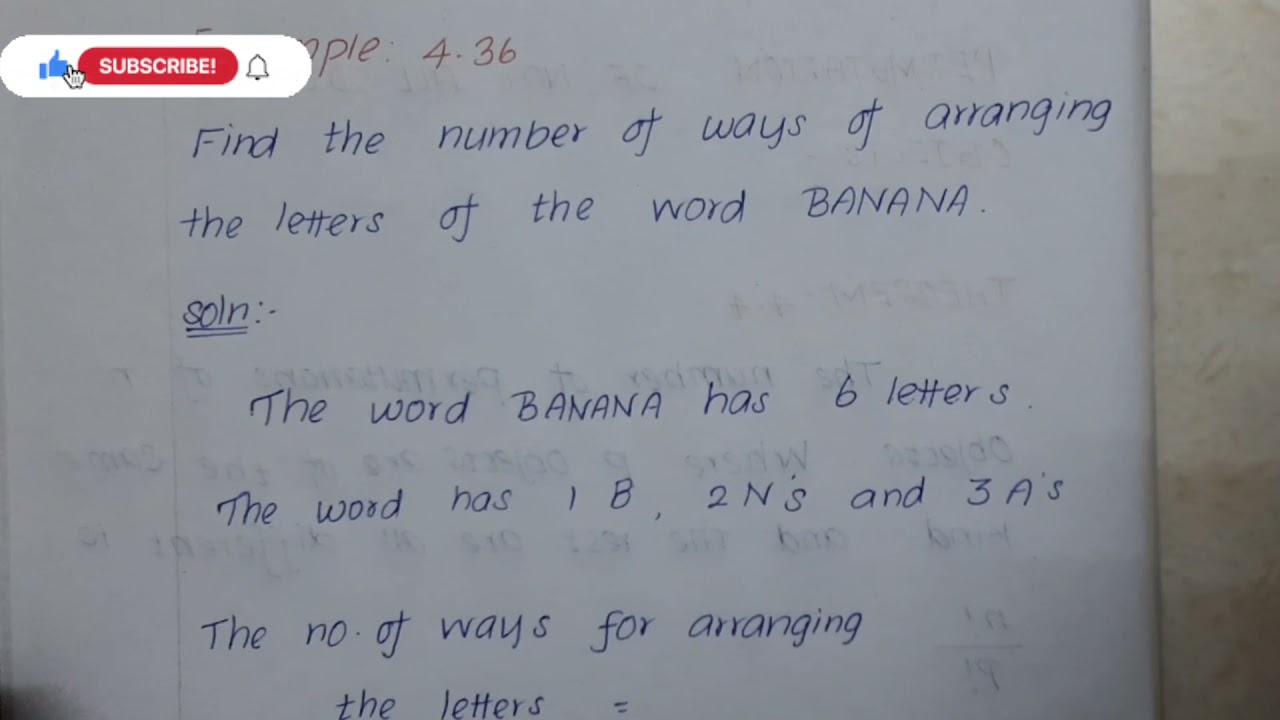 mple: 4.36
SUBSCRIBE!
Find the number of ways of arranging
the letters of the word BANANA.
soln:-
The word BANANA has 6 letters.
The word has 1 B, 2 N's and 3 A's
The no. of ways for arranging
the letters =